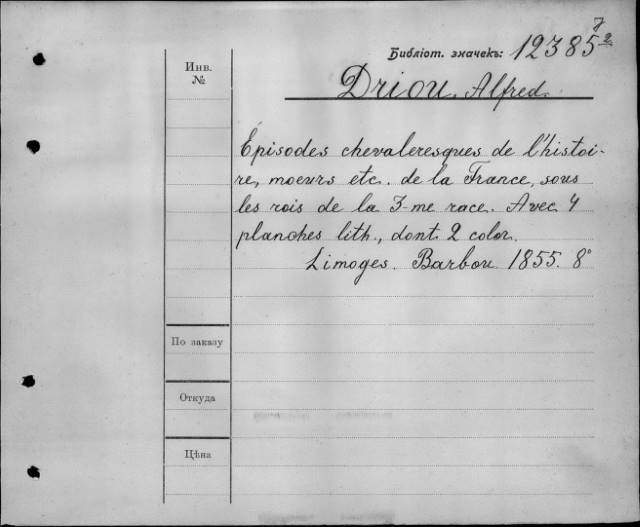 7
Библіот. значекъ: 12385 2
Инв.
№
Driou, Alfred.
Épisodes chevaleresques de l'histoi-
re, moeurs etc. de la France, sous
les rois de la 3-me race. Avec 4
planches lith., dont 2 color.
Limoges. Barbou 1855. 8°
По заказу
Откуда
Цѣна